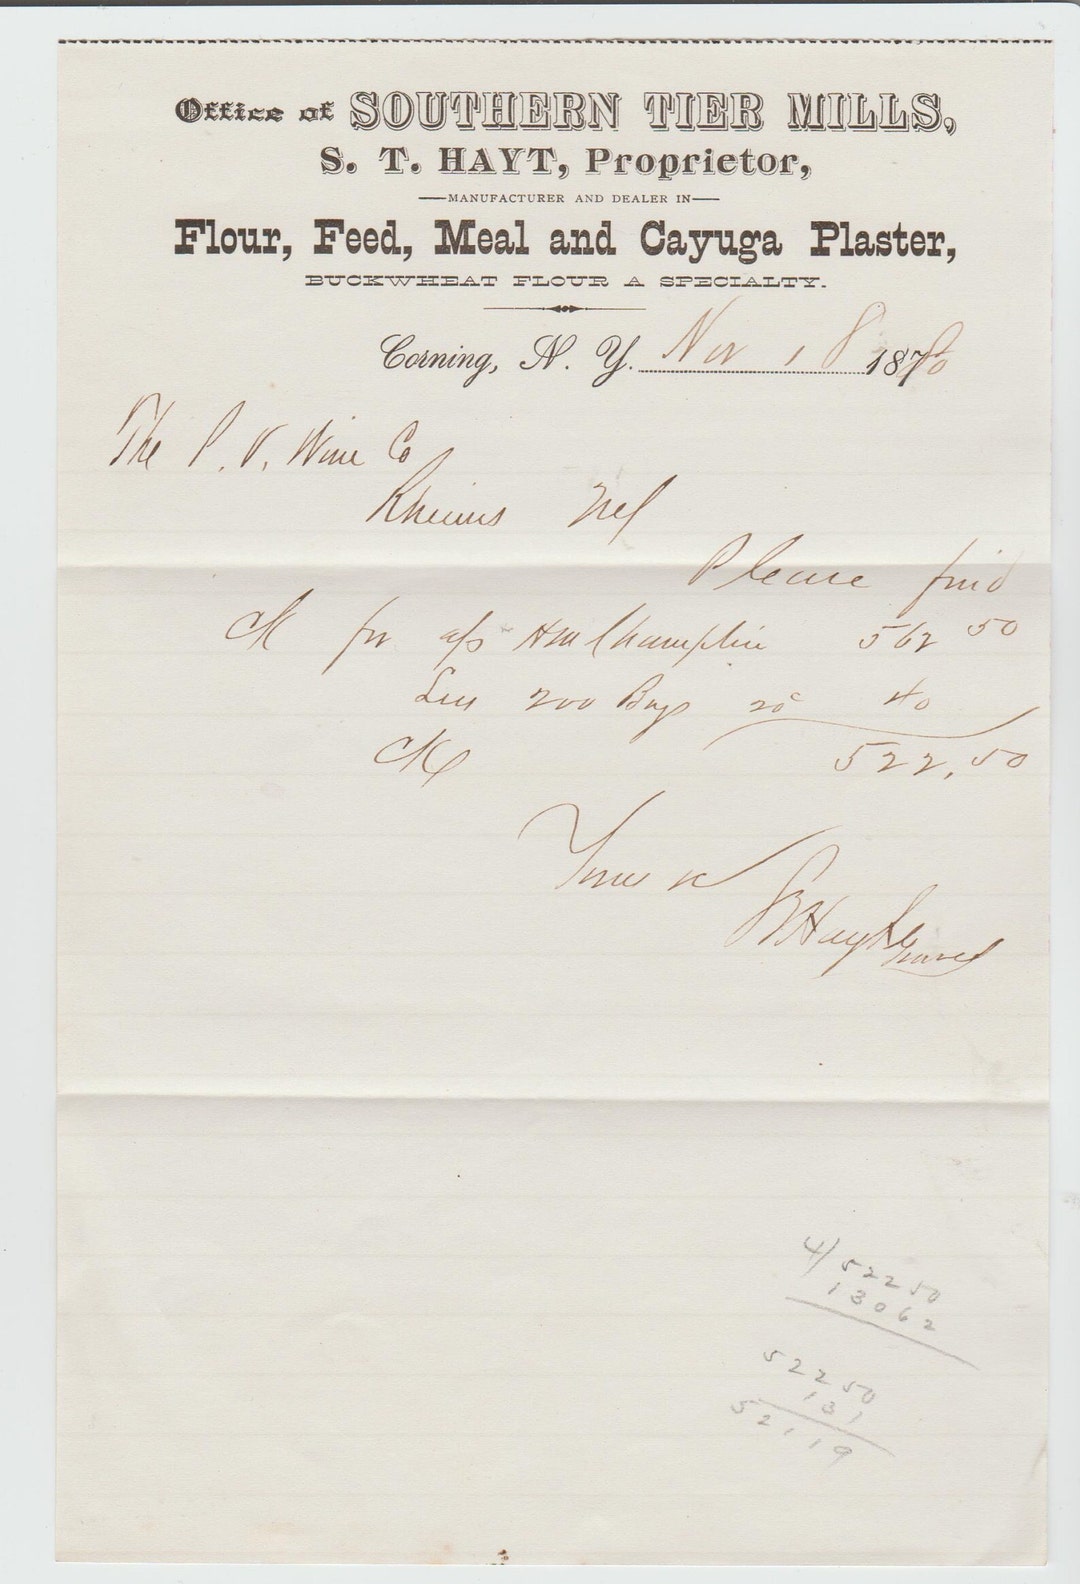 Office of SOUTHERN TIER MILLS,
S. T. HAYT, Proprietor,
MANUFACTURER AND DEALER IN
Flour, Feed, Meal and Cayuga Plaster,
BUCKWHEAT FLOUR A SPECIALTY.
Corning, N. Y. Nov 18 1880
The P. V. Wine Co
Rheims
Please find
CK for a/c H M Champlin 562 50
Less 200 Bags 20c 40
CK 522.50
Yours &c
S T Hayt
4/52250
13062
52250
131
52119